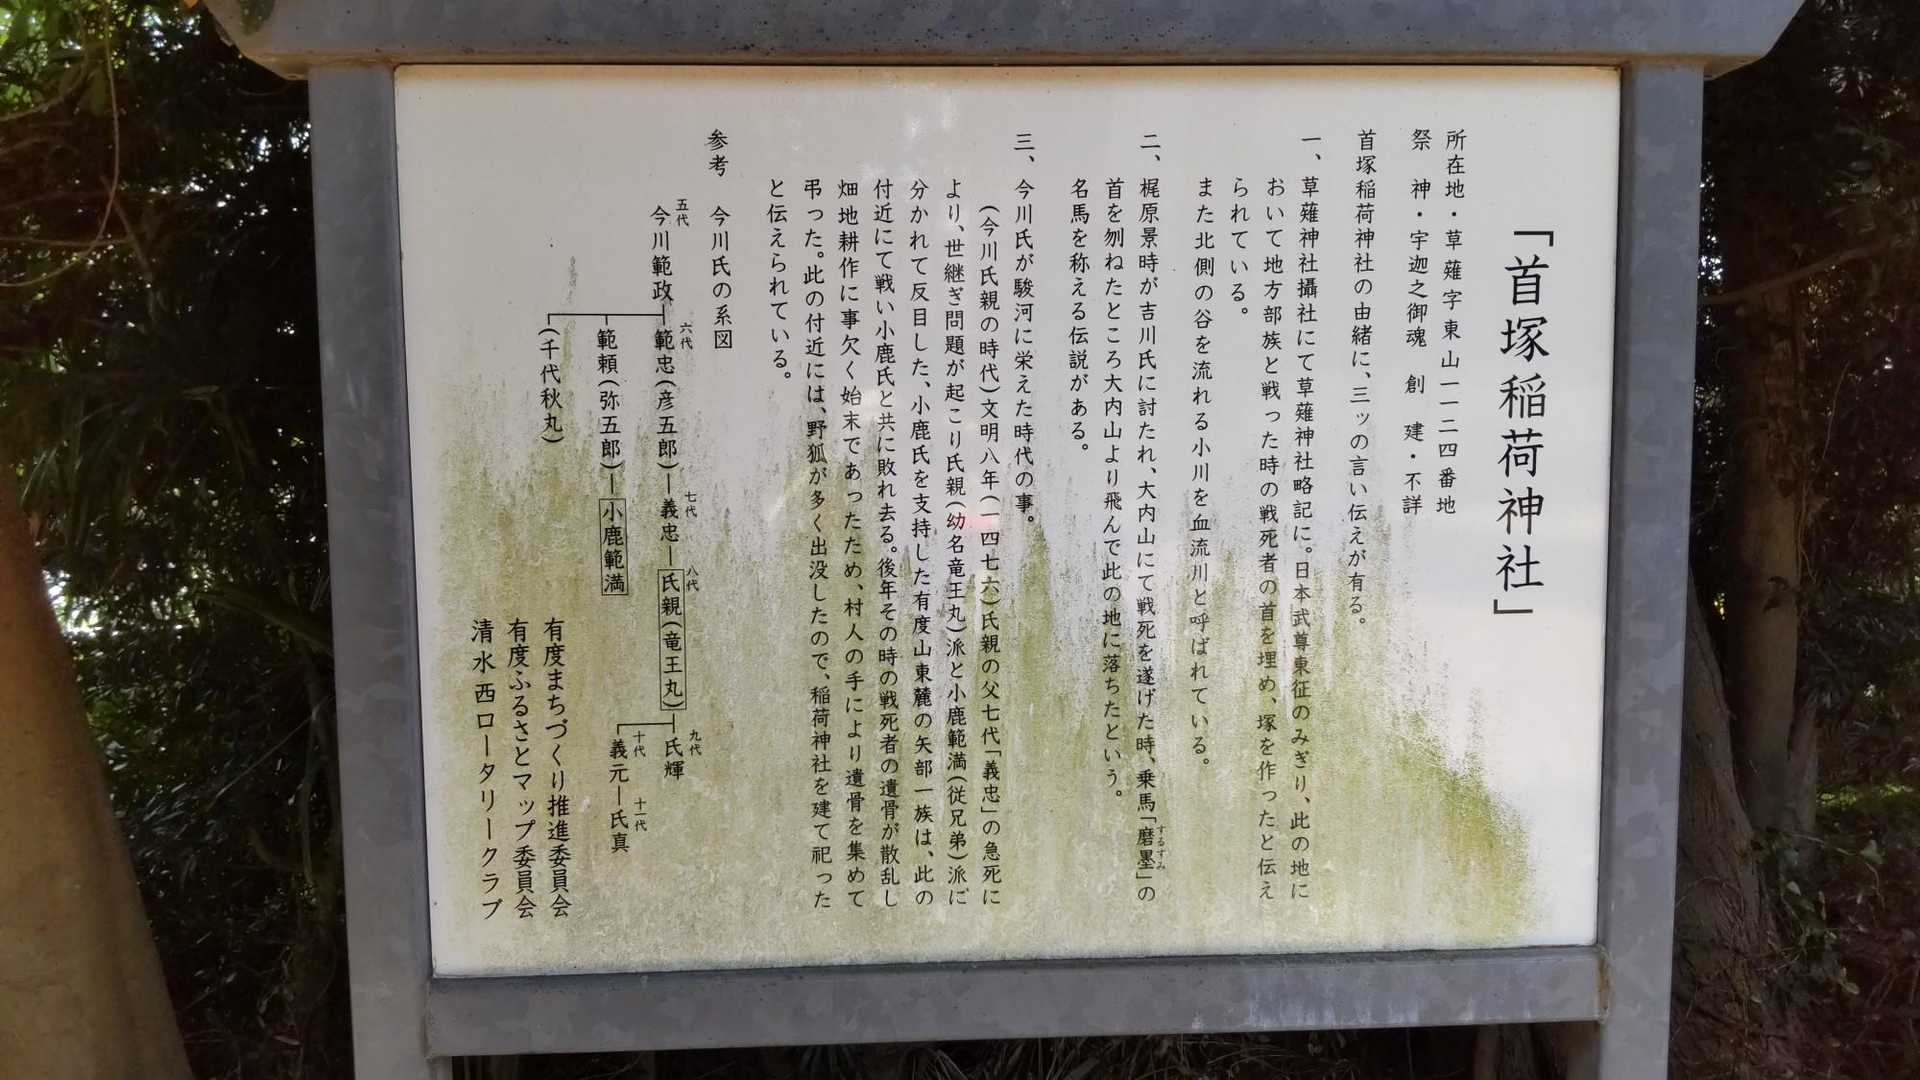 「首塚稲荷神社」
所在地・草薙字東山一一二四番地
祭　神・宇迦之御魂　創　建・不詳
首塚稲荷神社の由緒に、三ッの言い伝えが有る。
一、草薙神社攝社にて草薙神社略記に。日本武尊東征のみぎり、此の地に
おいて地方部族と戦った時の戦死者の首を埋め、塚を作ったと伝え
られている。
また北側の谷を流れる小川を血流川と呼ばれている。
二、梶原景時が吉川氏に討たれ、大内山にて戦死を遂げた時、乗馬「磨墨」の
するすみ
首を刎ねたところ大内山より飛んで此の地に落ちたという。
名馬を称える伝説がある。
三、今川氏が駿河に栄えた時代の事。
（今川氏親の時代）文明八年（一四七六）氏親の父七代「義忠」の急死に
より、世継ぎ問題が起こり氏親（幼名竜王丸）派と小鹿範満（従兄弟）派に
分かれて反目した、小鹿氏を支持した有度山東麓の矢部一族は、此の
付近にて戦い小鹿氏と共に敗れ去る。後年その時の戦死者の遺骨が散乱し
畑地耕作に事欠く始末であったため、村人の手により遺骨を集めて
弔った。此の付近には、野狐が多く出没したので、稲荷神社を建て祀った
と伝えられている。
参考　今川氏の系図
五代　六代　七代　八代　九代
今川範政　範忠（彦五郎）ー義忠ー氏親（竜王丸）　氏輝
十代　十一代
義元ー氏真
範頼（弥五郎）ー小鹿範満
（千代秋丸）
有度まちづくり推進委員会
有度ふるさとマップ委員会
清水西ロータリークラブ